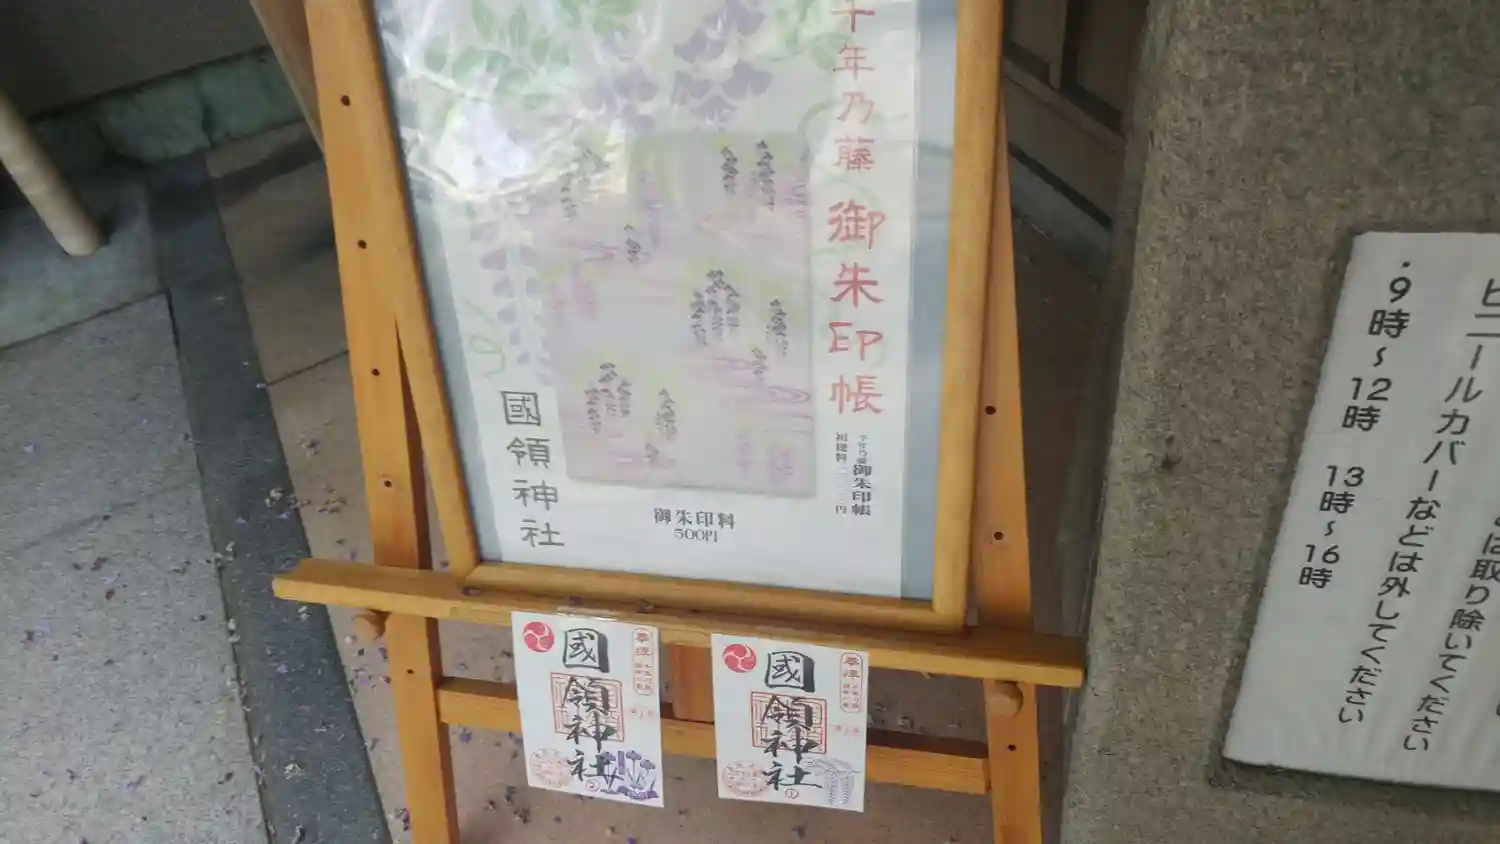 千年乃藤 御朱印帳
千年乃藤 御朱印帳
初穂料
國領神社
御朱印料
500円
奉拝
國領神社
②
奉拝
國領神社
①
は取り除いてください
ビニールカバーなどは外してください
・9時~12時 13時~16時